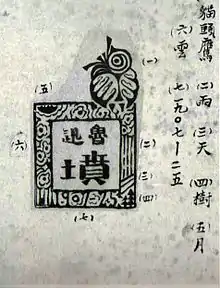 貓頭鷹 (二)雨 (三)天 (四)樹 (五)月
(六)雲 (七)一九〇七—二五
(一)
(二)
(三)
(四)
(五)
(六)
(七)
魯迅
墳